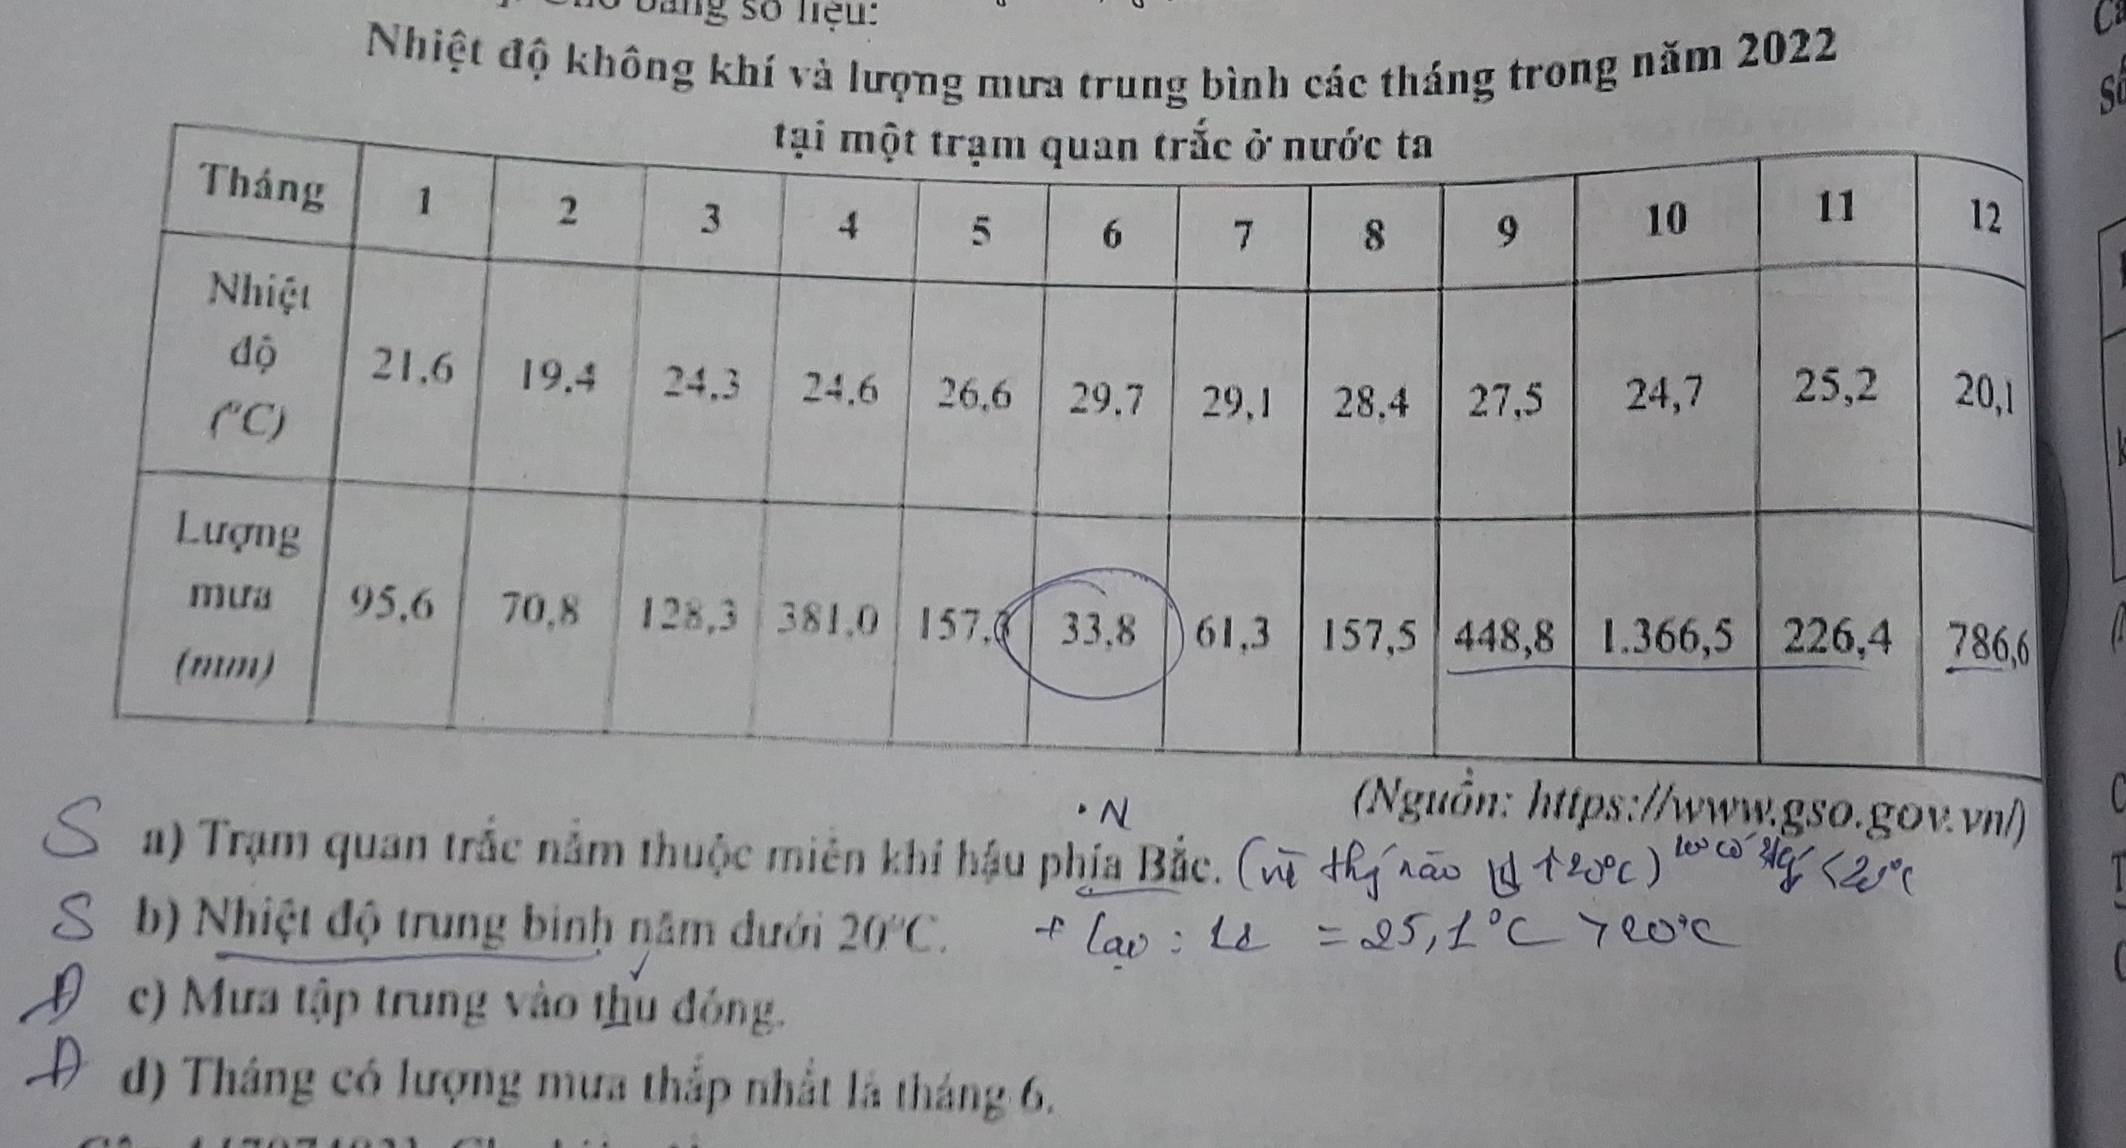 bảng số liệu:
Nhiệt độ không khí và lượng mưa trung bình các tháng trong năm 2022
tại một trạm quan trắc ở nước ta
Tháng 1 2 3 4 5 6 7 8 9 10 11 12
Nhiệt độ (°C) 21,6 19,4 24,3 24,6 26,6 29,7 29,1 28,4 27,5 24,7 25,2 20,1
Lượng mưa (mm) 95,6 70,8 128,3 381,0 157, 33,8 61,3 157,5 448,8 1.366,5 226,4 786,6
(Nguồn: https://www.gso.gov.vn/)
N
S a) Trạm quan trắc nằm thuộc miền khí hậu phía Bắc. (vì
<20°C
S b) Nhiệt độ trung bình năm dưới 20°C. = 25,1°C >20°C
Đ c) Mưa tập trung vào thu đông.
Đ d) Tháng có lượng mưa thấp nhất là tháng 6.